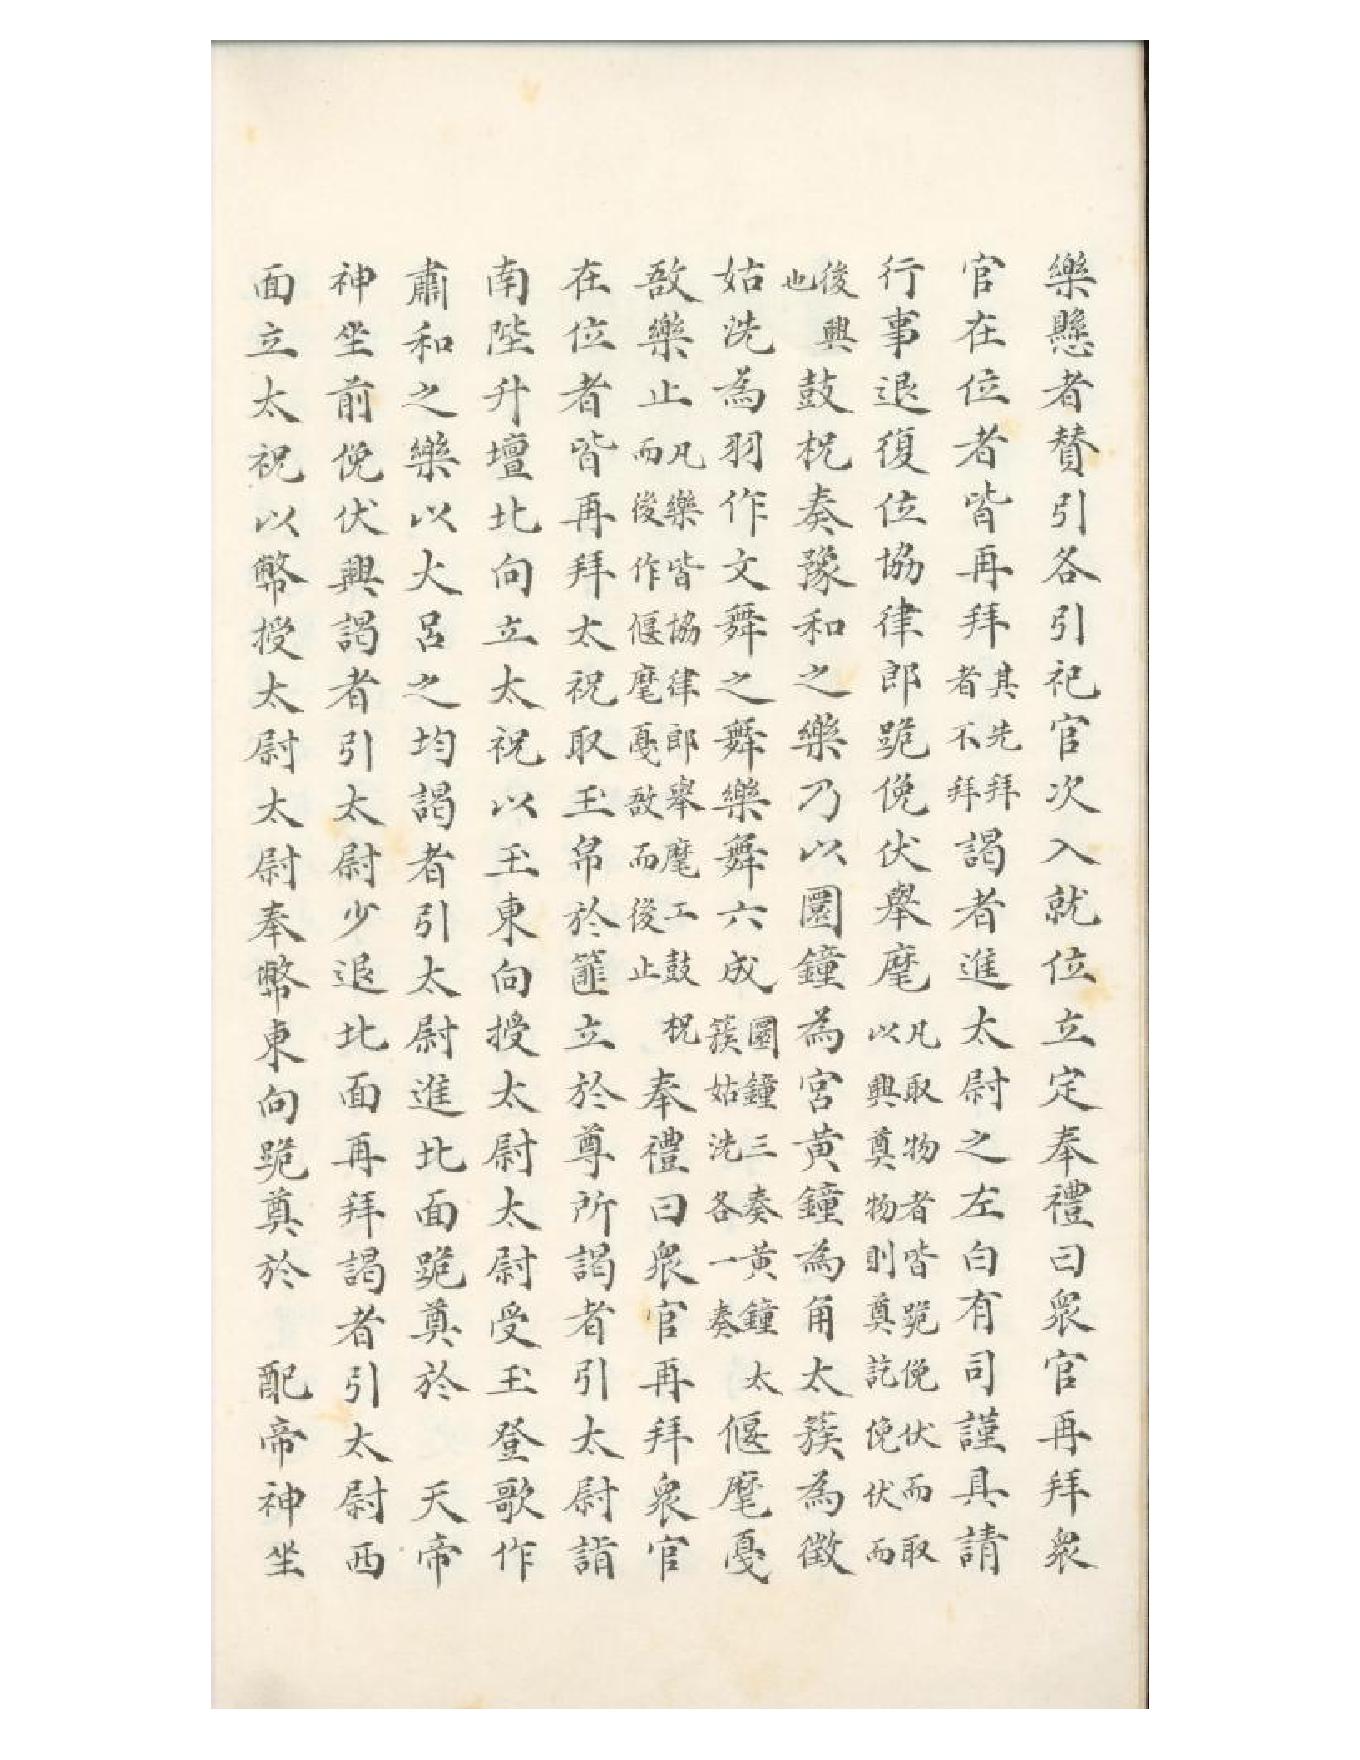 樂懸者賛引各引祀官次入就位立定奉禮曰衆官再拜衆
官在位者皆再拜其先拜者不拜謁者進太尉之左白有司謹具請
行事退復位協律郎跪俛伏舉麾凡取物者皆跪俛伏而取以興奠物則奠訖俛伏而
後興也鼓柷奏豫和之樂乃以圜鐘為宮黃鐘為角太簇為徵
姑洗為羽作文舞之舞樂舞六成圜鐘三奏黃鐘太簇姑洗各一奏偃麾戛
敔樂止凡樂皆協律郎舉麾工鼓柷而後作偃麾戛敔而後止奉禮曰衆官再拜衆官
在位者皆再拜太祝取玉帛於篚立於尊所謁者引太尉詣
南陛升壇北向立太祝以玉東向授太尉太尉受玉登歌作
肅和之樂以大呂之均謁者引太尉進北面跪奠於 天帝
神坐前俛伏興謁者引太尉少退北面再拜謁者引太尉西
面立太祝以幣授太尉太尉奉幣東向跪奠於 配帝神坐